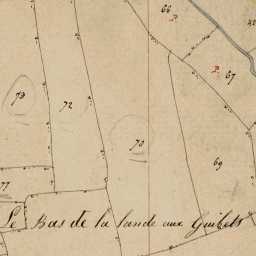 66
P.
P. 67
78
72
70
69
77
Le Bas de la lande aux Guibets